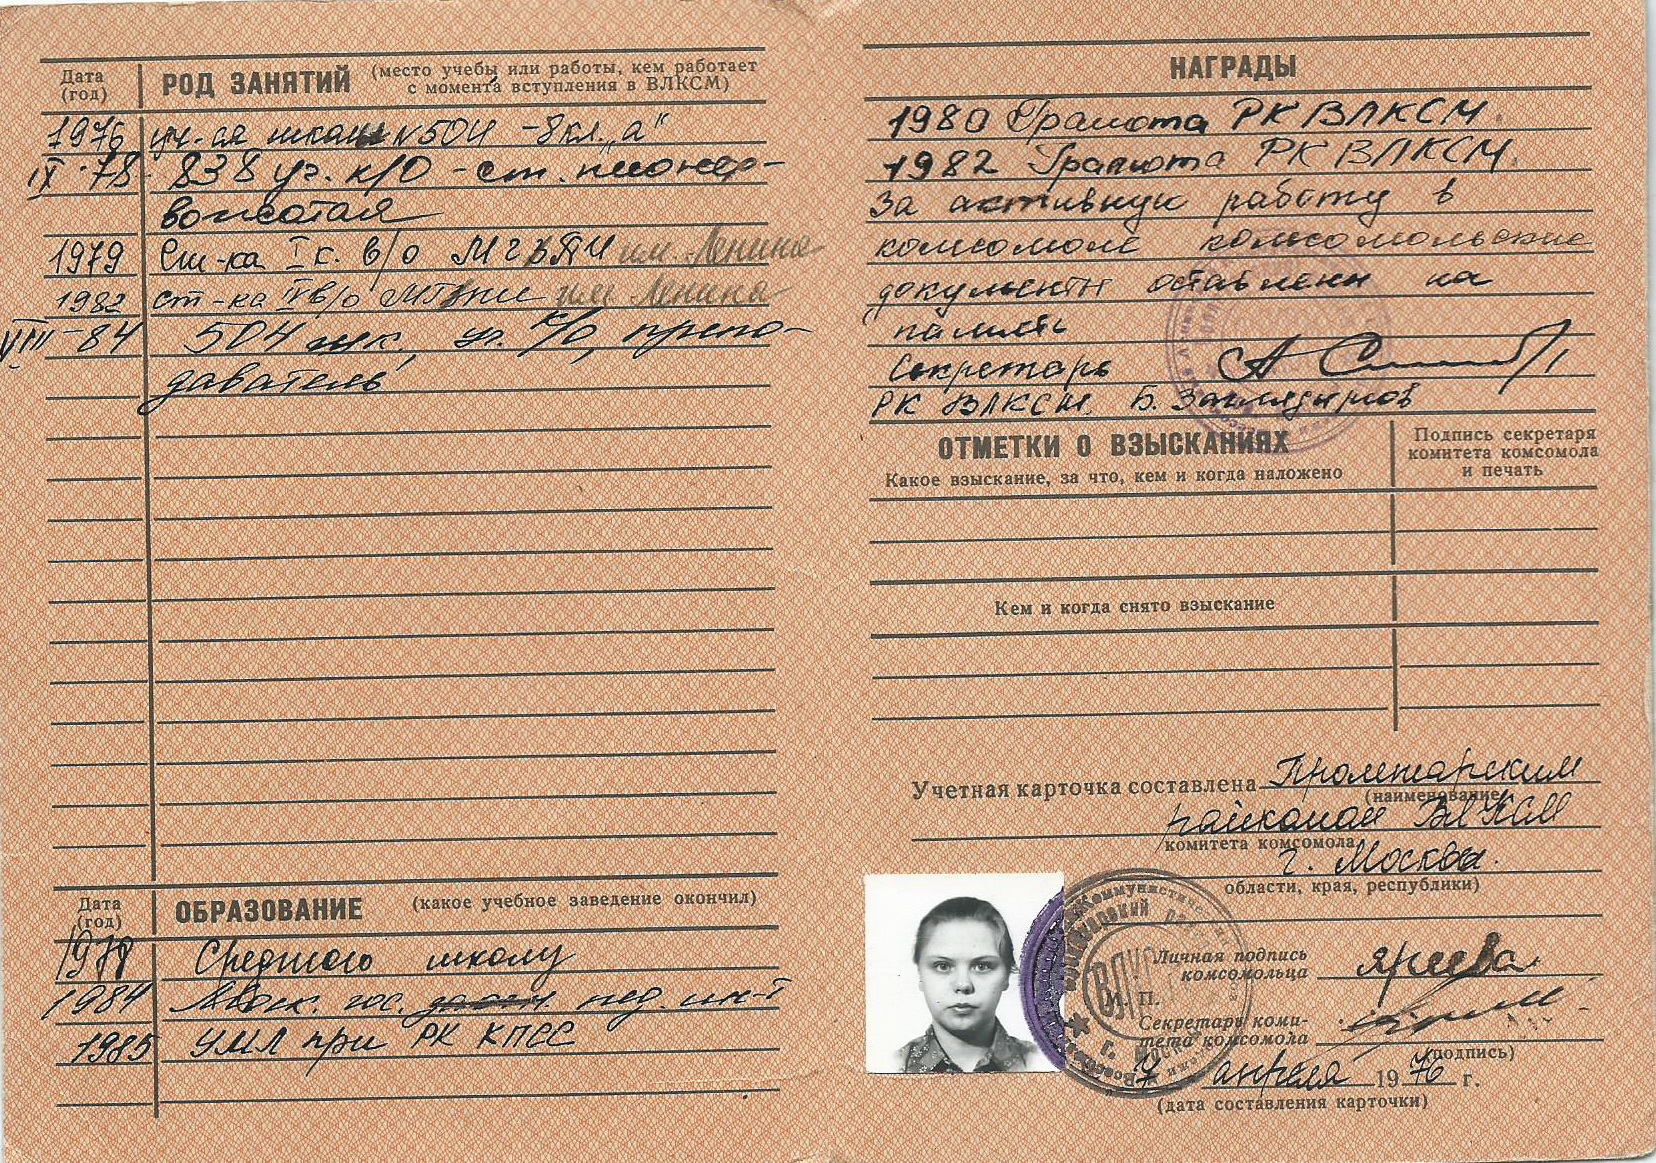 Дата
(год)
РОД ЗАНЯТИЙ (место учебы или работы, кем работает
с момента вступления в ВЛКСМ)
1976 уч-ся школы № 504 - 8 кл. „а"
IX-78 838 уг. к/о - ст. пионер-
вожатая
1979 Ст-ка I к. в/о МГЗПИ им. Ленина
1982 ст-ка IV в/о МГЗПИ им. Ленина
VIII-84 504 шк., уг. к/о, препо-
даватель
Дата
(год)
ОБРАЗОВАНИЕ (какое учебное заведение окончил)
Среднюю школу
1984 Моск. гос. пед. ин-т
1985 УМЛ при РК КПСС
НАГРАДЫ
1980 Грамота РК ВЛКСМ.
1982 Грамота РК ВЛКСМ.
За активную работу в
комсомоле комсомольские
документы оставлены на
память
Секретарь
РК ВЛКСМ. Б.
ОТМЕТКИ О ВЗЫСКАНИЯХ
Какое взыскание, за что, кем и когда наложено
Подпись секретаря
комитета комсомола
и печать
Кем и когда снято взыскание
Учетная карточка составлена Пролетарским
(наименование
райкомом ВЛКСМ
комитета комсомола,
г. Москвы.
области, края, республики)
Личная подпись
комсомольца
М. П.
Секретарь коми-
тета комсомола
(подпись)
7 апреля 1976 г.
(дата составления карточки)